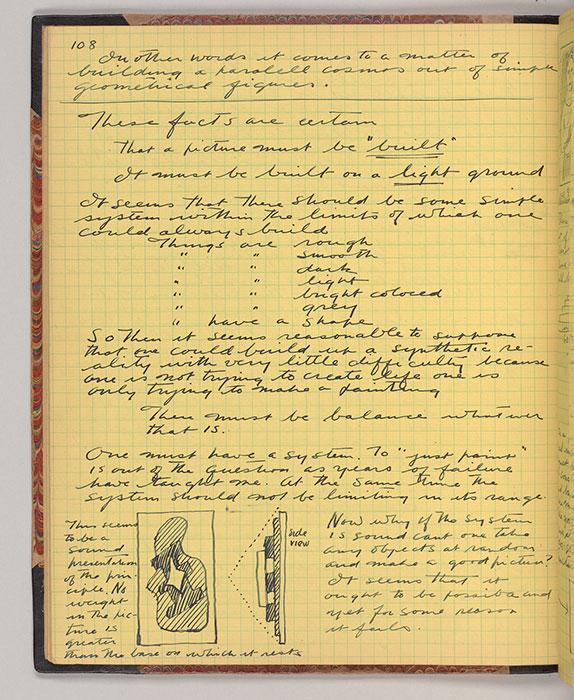 108
In other words it comes to a matter of
building a paralell cosmos out of simple
geometrical figures.
These facts are certain
That a picture must be "built"
It must be built on a light ground
It seems that there should be some simple
system within the limits of which one
could always build
Things are rough
" " smooth
" " dark
" " light
" " bright colored
" " grey
" have a shape
So then it seems reasonable to suppose
that one could build up a synthetic re-
ality with very little difficulty because
one is not trying to create life one is
only trying to make a painting
There must be balance whatever
that is.
One must have a system. To "just paint"
is out of the question as years of failure
have taught me. At the same time the
system should not be limiting in its range.
This seems
to be a
sound
presentation
of the prin-
ciple. No
weight
in the pic-
ture is
greater
than the base on which it rests
side
view
Now why if the system
is sound cant one take
any objects at random
and make a good picture?
It seems that it
ought to be possible and
yet for some reason
it fails.